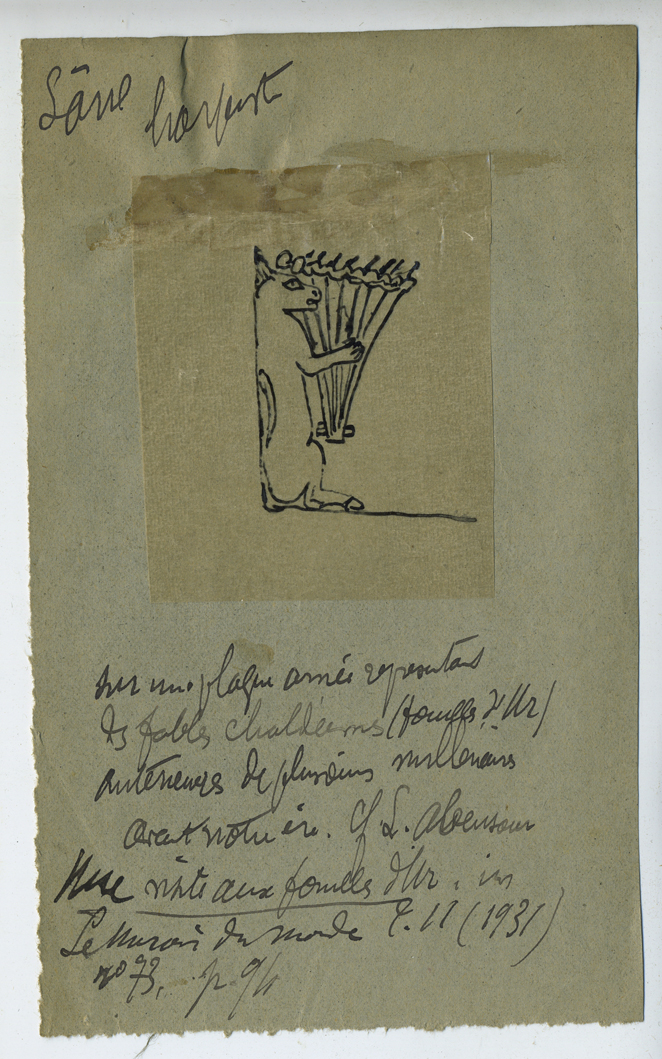 L'âne harpiste
sur une plaque ornée représentant
des fables chaldéennes (fouilles d'Ur)
antérieures de plusieurs millénaires
avant notre ère. Cf L. Abensour
Une visite aux fouilles d'Ur. in
Le Miroir du Monde T. II (1931)
nº 73. p. 94